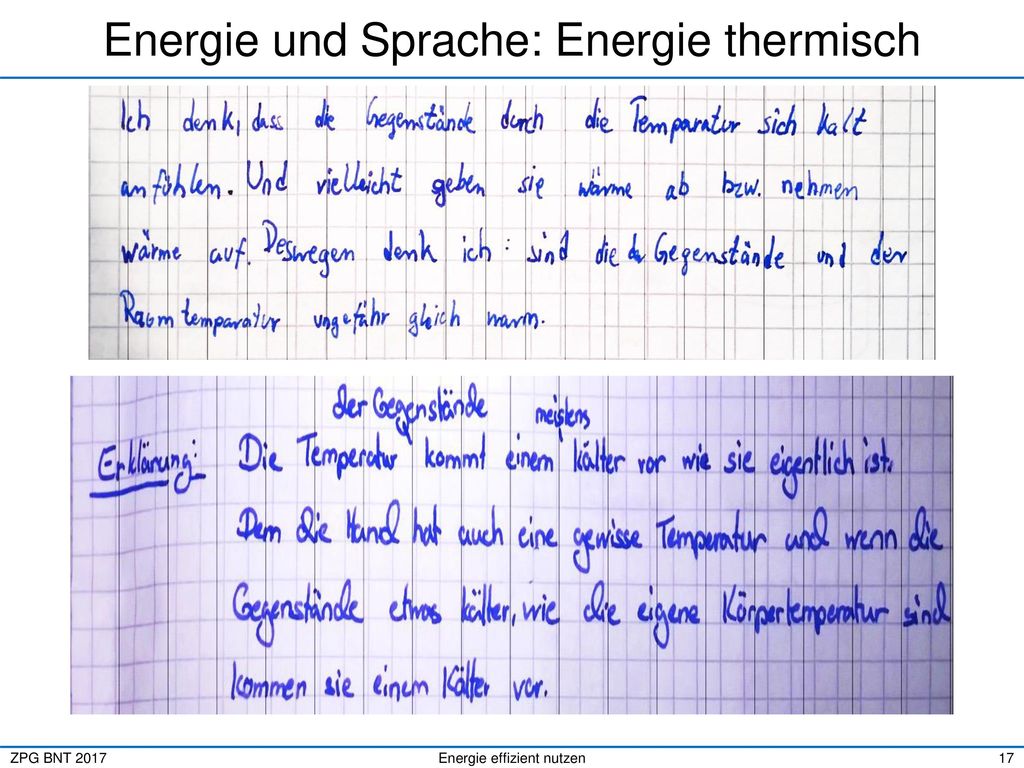 Energie und Sprache: Energie thermisch
Ich denk, dass die Gegenstände durch die Temparatur sich kalt
anfühlen. Und vielleicht geben sie wärme ab bzw. nehmen
wärme auf. Deswegen denk ich: sind die Gegenstände und der
Raumtemparatur ungefähr gleich warm.
der Gegenstände meistens
Erklärung: Die Temperatur kommt einem kälter vor wie sie eigentlich ist.
Denn die Hand hat auch eine gewisse Temperatur und wenn die
Gegenstände etwas kälter, wie die eigene Körpertemperatur sind
kommen sie einem Kälter vor.
ZPG BNT 2017 Energie effizient nutzen 17